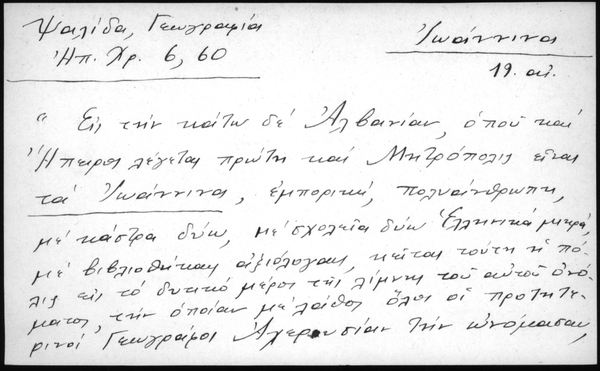 Ψαλίδα, Γεωγραφία
Ἠπ. Χρ. 6, 60
Ἰωάννινα
19. αἰ.
" Εἰς τὴν κάτω δὲ Ἀλβανίαν, ὁποῦ καὶ
Ἤπειρος λέγεται πρώτη καὶ Μητρόπολις εἶναι
τὰ Ἰωάννινα, ἐμπορική, πολυάνθρωπη,
μὲ κάστρα δύω, μὲ σχολεῖα δύω Ἑλληνικὰ μικρά,
μὲ βιβλιοθήκας ἀξιόλογας, κεῖται τούτη ἡ πό-
λις εἰς τὸ δυτικὸ μέρος τῆς λίμνης τοῦ αὐτοῦ ὀνό-
ματος, τὴν ὁποίαν μὲ λάθος ὅλοι οἱ προτητε-
ρινοὶ Γεωγράφοι Ἀχερουσίαν τὴν ὠνόμασαν,